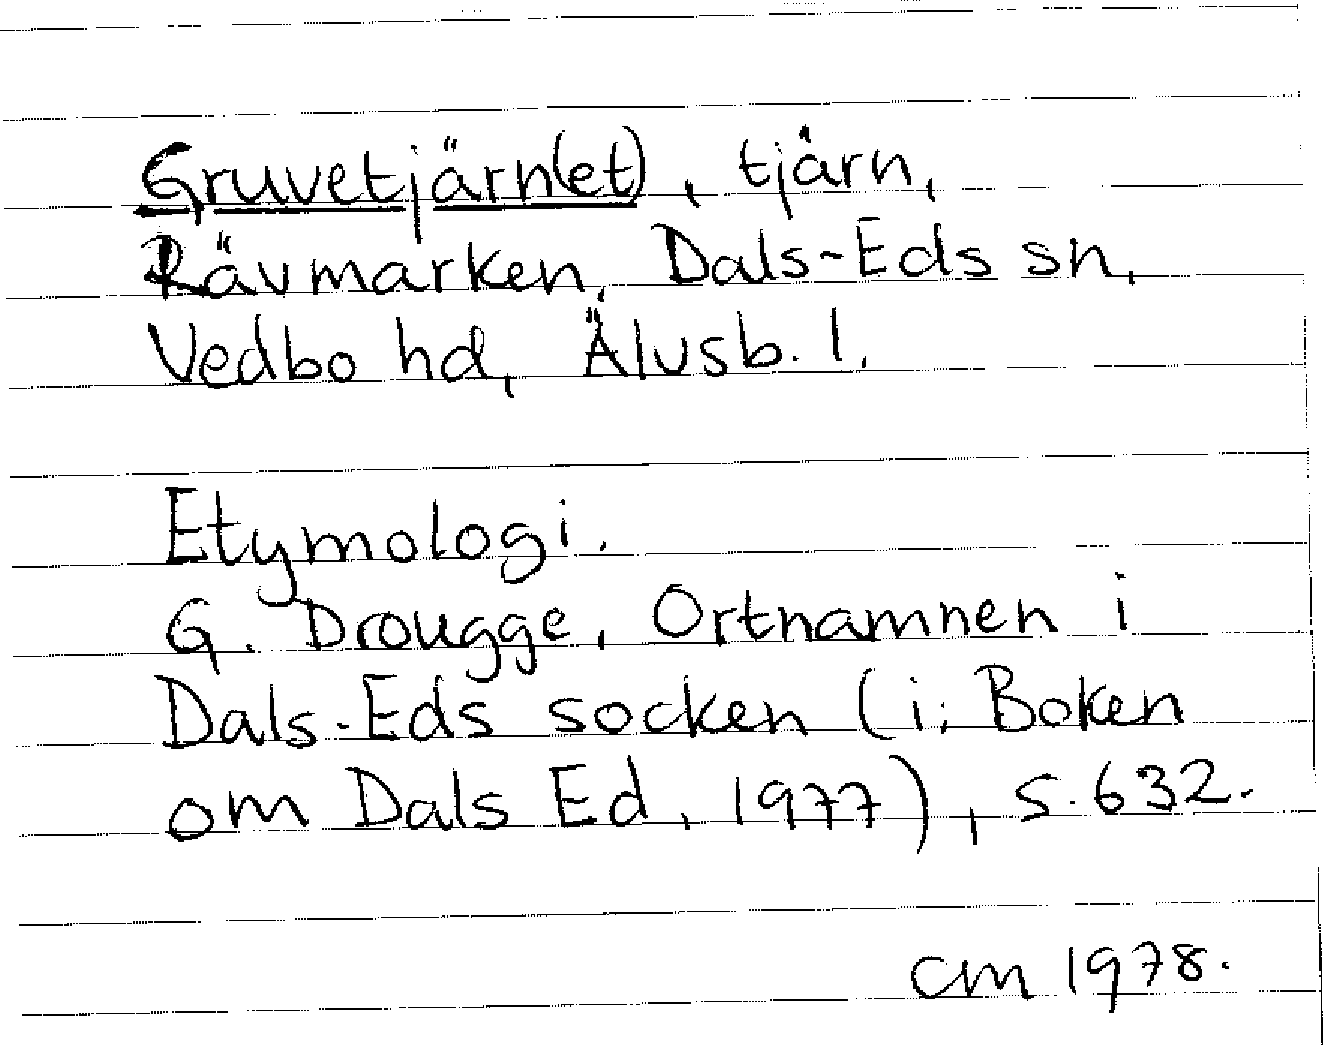 Gruvetjärn(et), tjärn,
Rävmarken, Dals-Eds sn,
Vedbo hd, Älvsb. l.
Etymologi.
G. Drougge, Ortnamnen i
Dals-Eds socken (i: Boken
om Dals Ed, 1977), s. 632.
CM 1978.